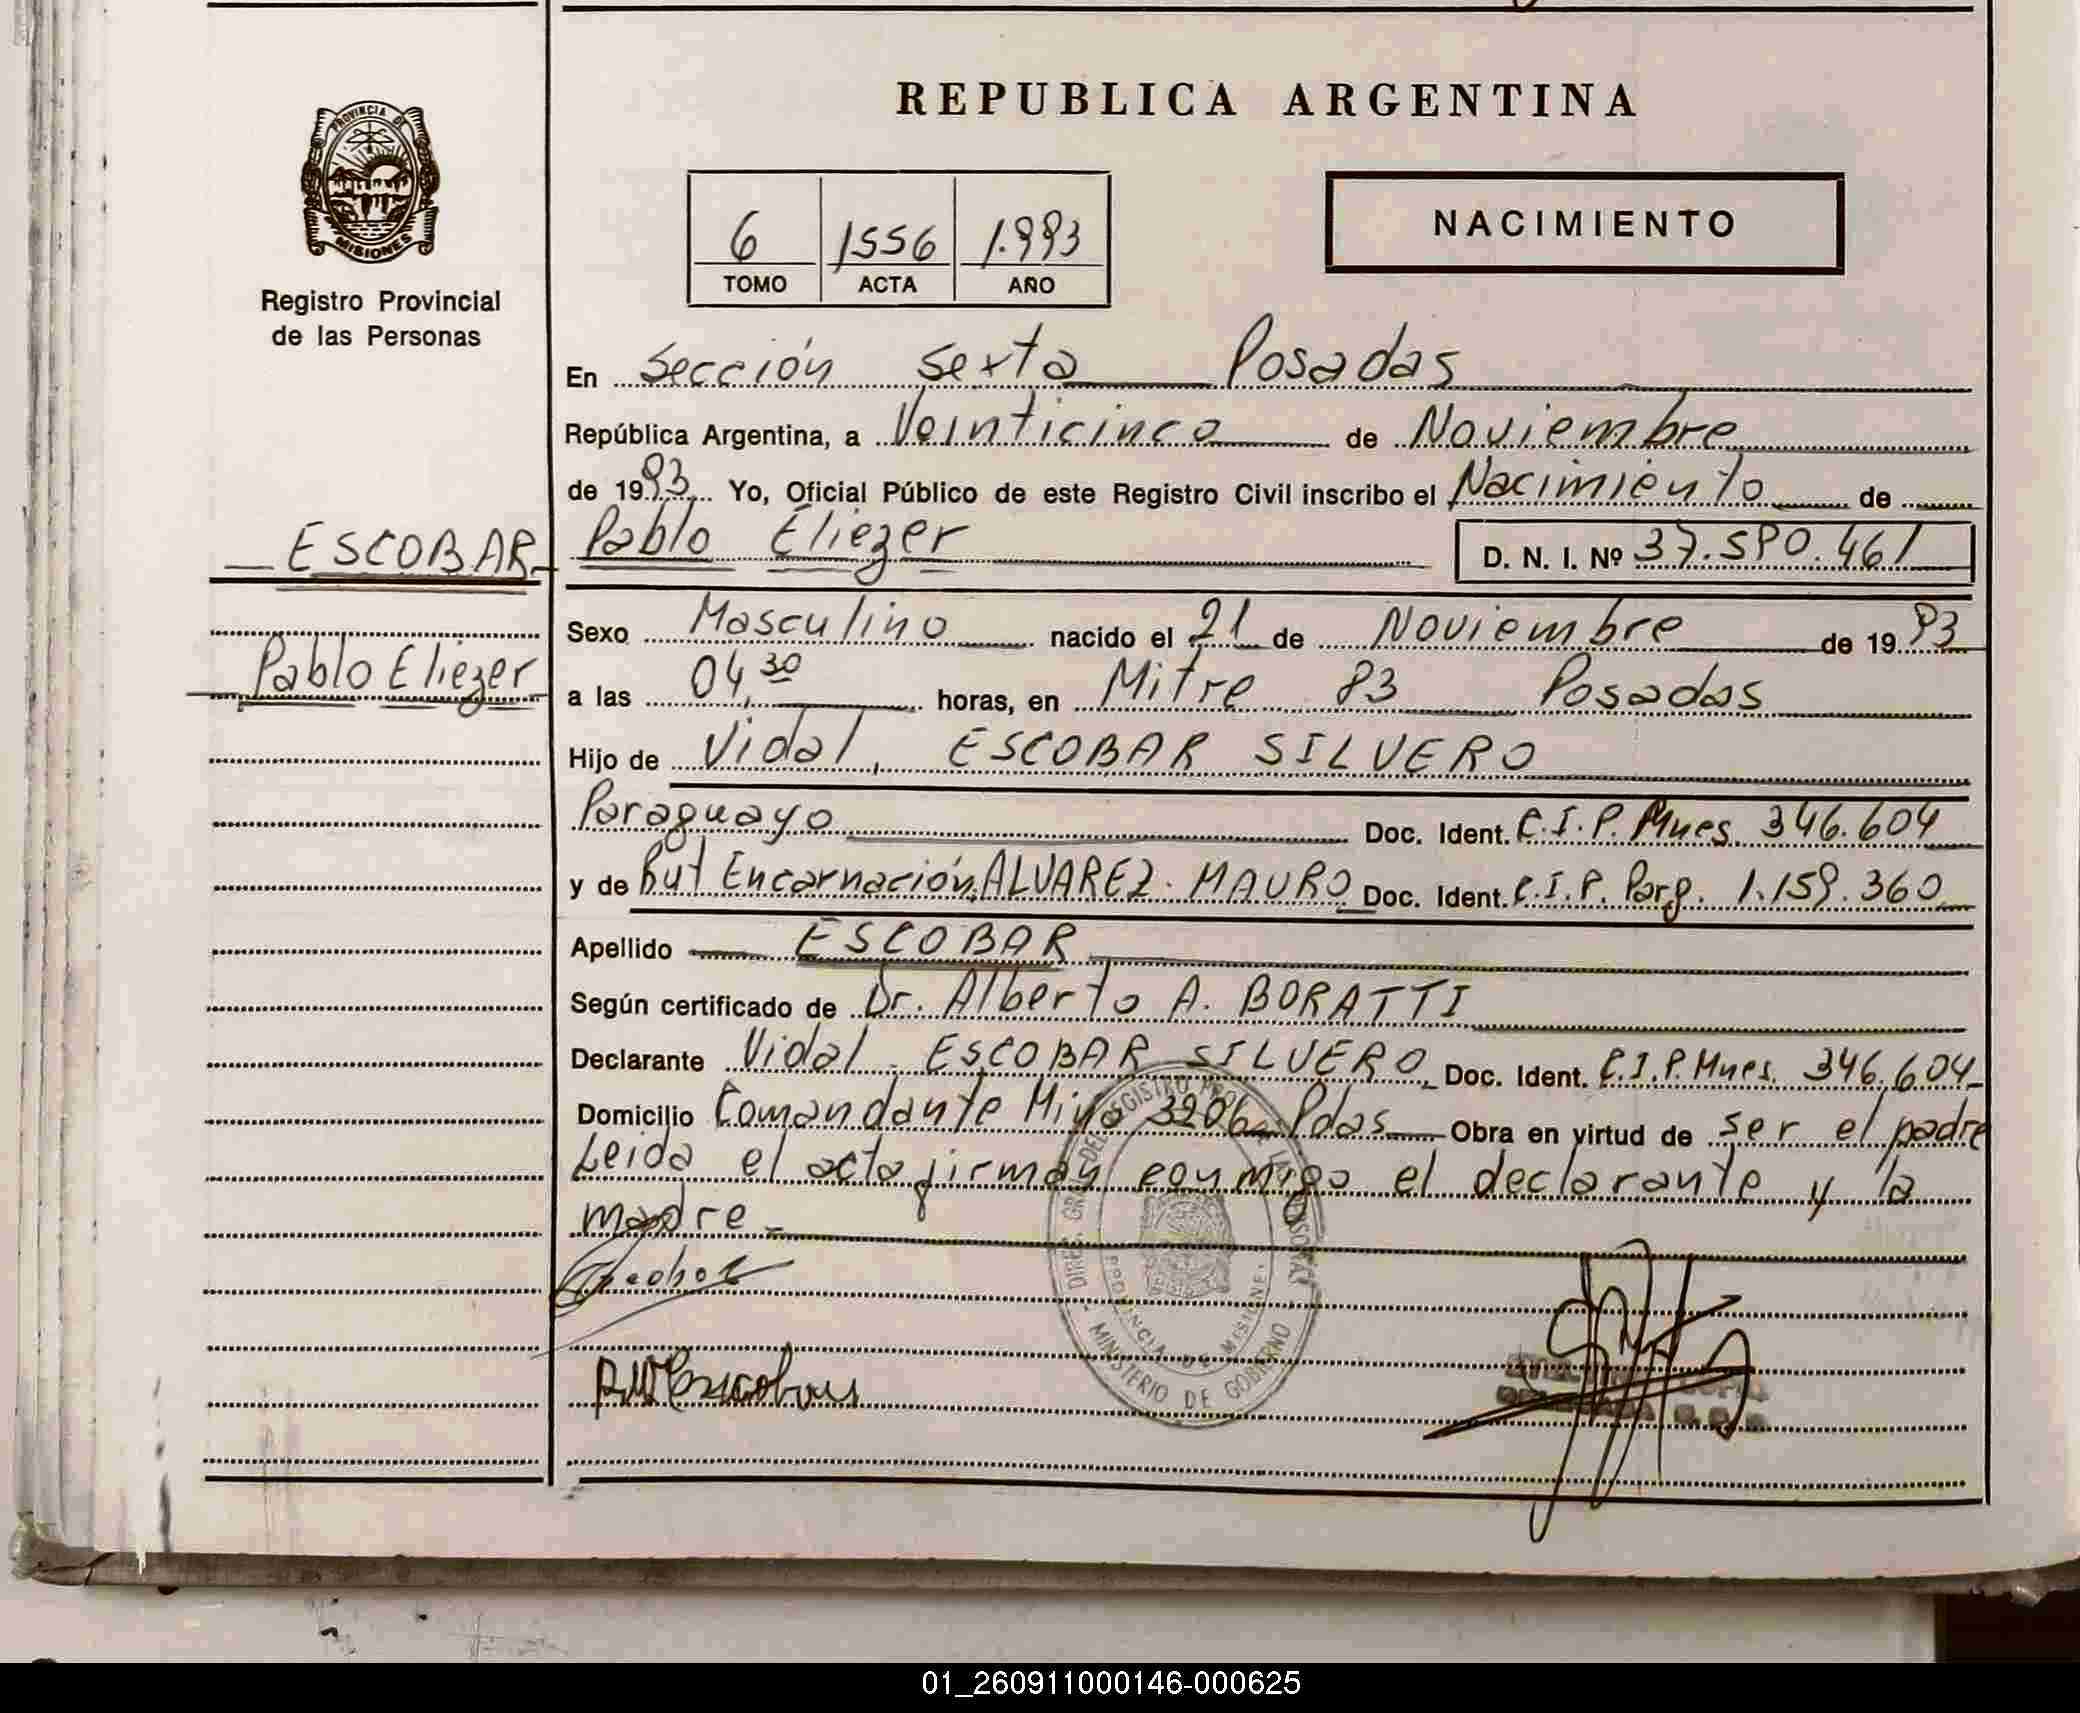 REPUBLICA ARGENTINA
PROVINCIA DE
MISIONES
Registro Provincial
de las Personas
NACIMIENTO
6 1556 1.993
TOMO ACTA AÑO
En Sección Sexta Posadas
República Argentina, a Veinticinco de Noviembre
de 1993 Yo, Oficial Público de este Registro Civil inscribo el Nacimiento de
ESCOBAR Pablo Eliezer D. N. I. Nº 37.590.461
Sexo Masculino nacido el 21 de Noviembre de 1993
Pablo Eliezer
a las 04,30 horas, en Mitre 83 Posadas
Hijo de Vidal, ESCOBAR SILVERO
Paraguayo Doc. Ident. C.I.P. Mnes. 346.604
y de Rut Encarnación, ALVAREZ MAURO Doc. Ident. C.I.P. Parg. 1.159.360
Apellido ESCOBAR
Según certificado de Dr. Alberto A. BORATTI
Declarante Vidal ESCOBAR SILVERO Doc. Ident. C.I.P. Mnes. 346.604
Domicilio Comandante Miño 3206 Pdas Obra en virtud de ser el padre
Leida el acta firman conmigo el declarante y la
madre
MINISTERIO DE GOBIERNO
PROVINCIA DE MISIONES
01_260911000146-000625